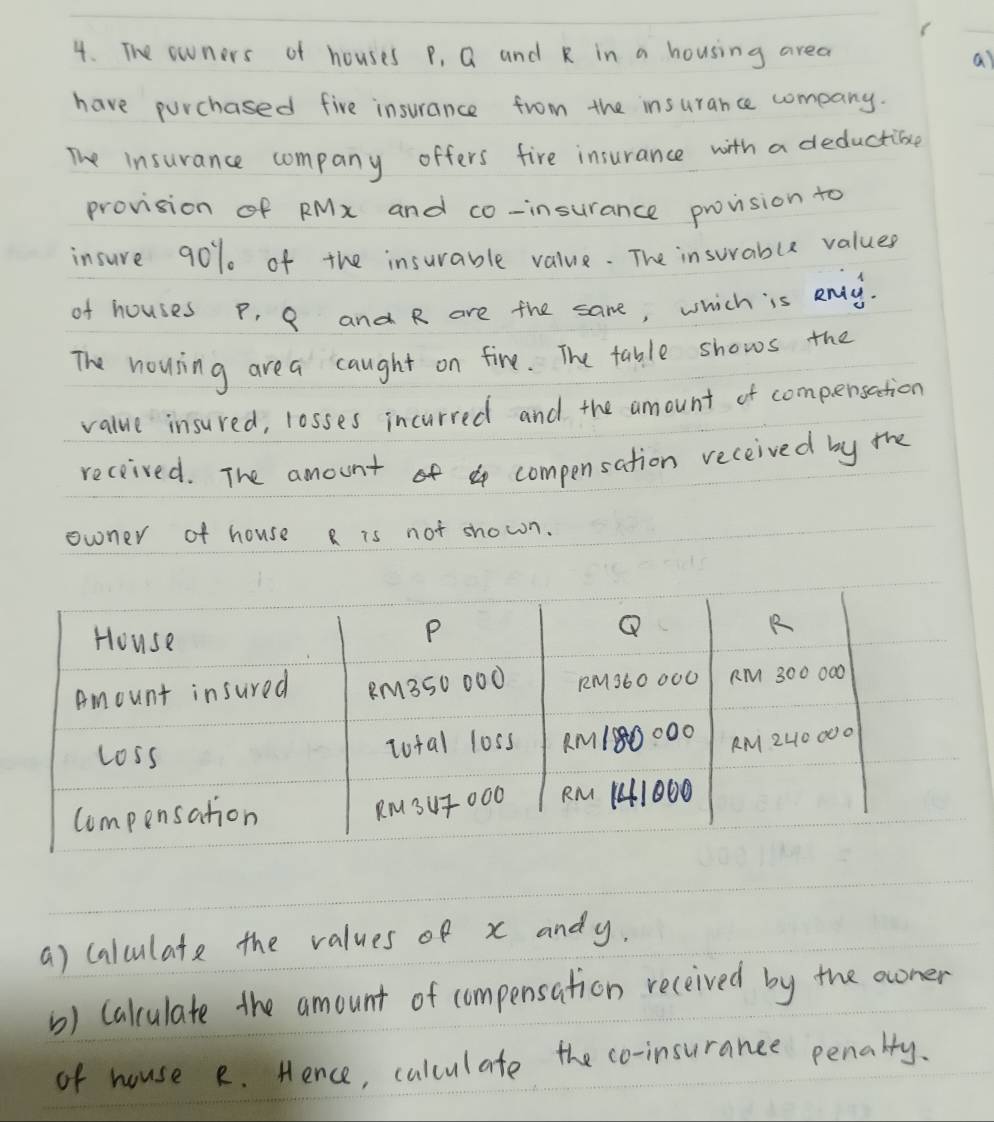 4. The owners of houses P, Q and R in a housing area
have purchased fire insurance from the insurance company.
The insurance company offers fire insurance with a deductible
provision of RMx and co-insurance provision to
insure 90% of the insurable value. The insurable values
of houses P, Q and R are the same, which is RMy.
The housing area caught on fire. The table shows the
value insured, losses incurred and the amount of compensation
received. The amount of compensation received by the
owner of house R is not shown.
House P Q R
Amount insured RM350 000 RM360 000 RM 300 000
Loss Total loss RM180 000 RM 240 000
Compensation RM347 000 RM 141000
a) Calculate the values of x and y.
b) Calculate the amount of compensation received by the owner
of house R. Hence, calculate the co-insurance penalty.
a)